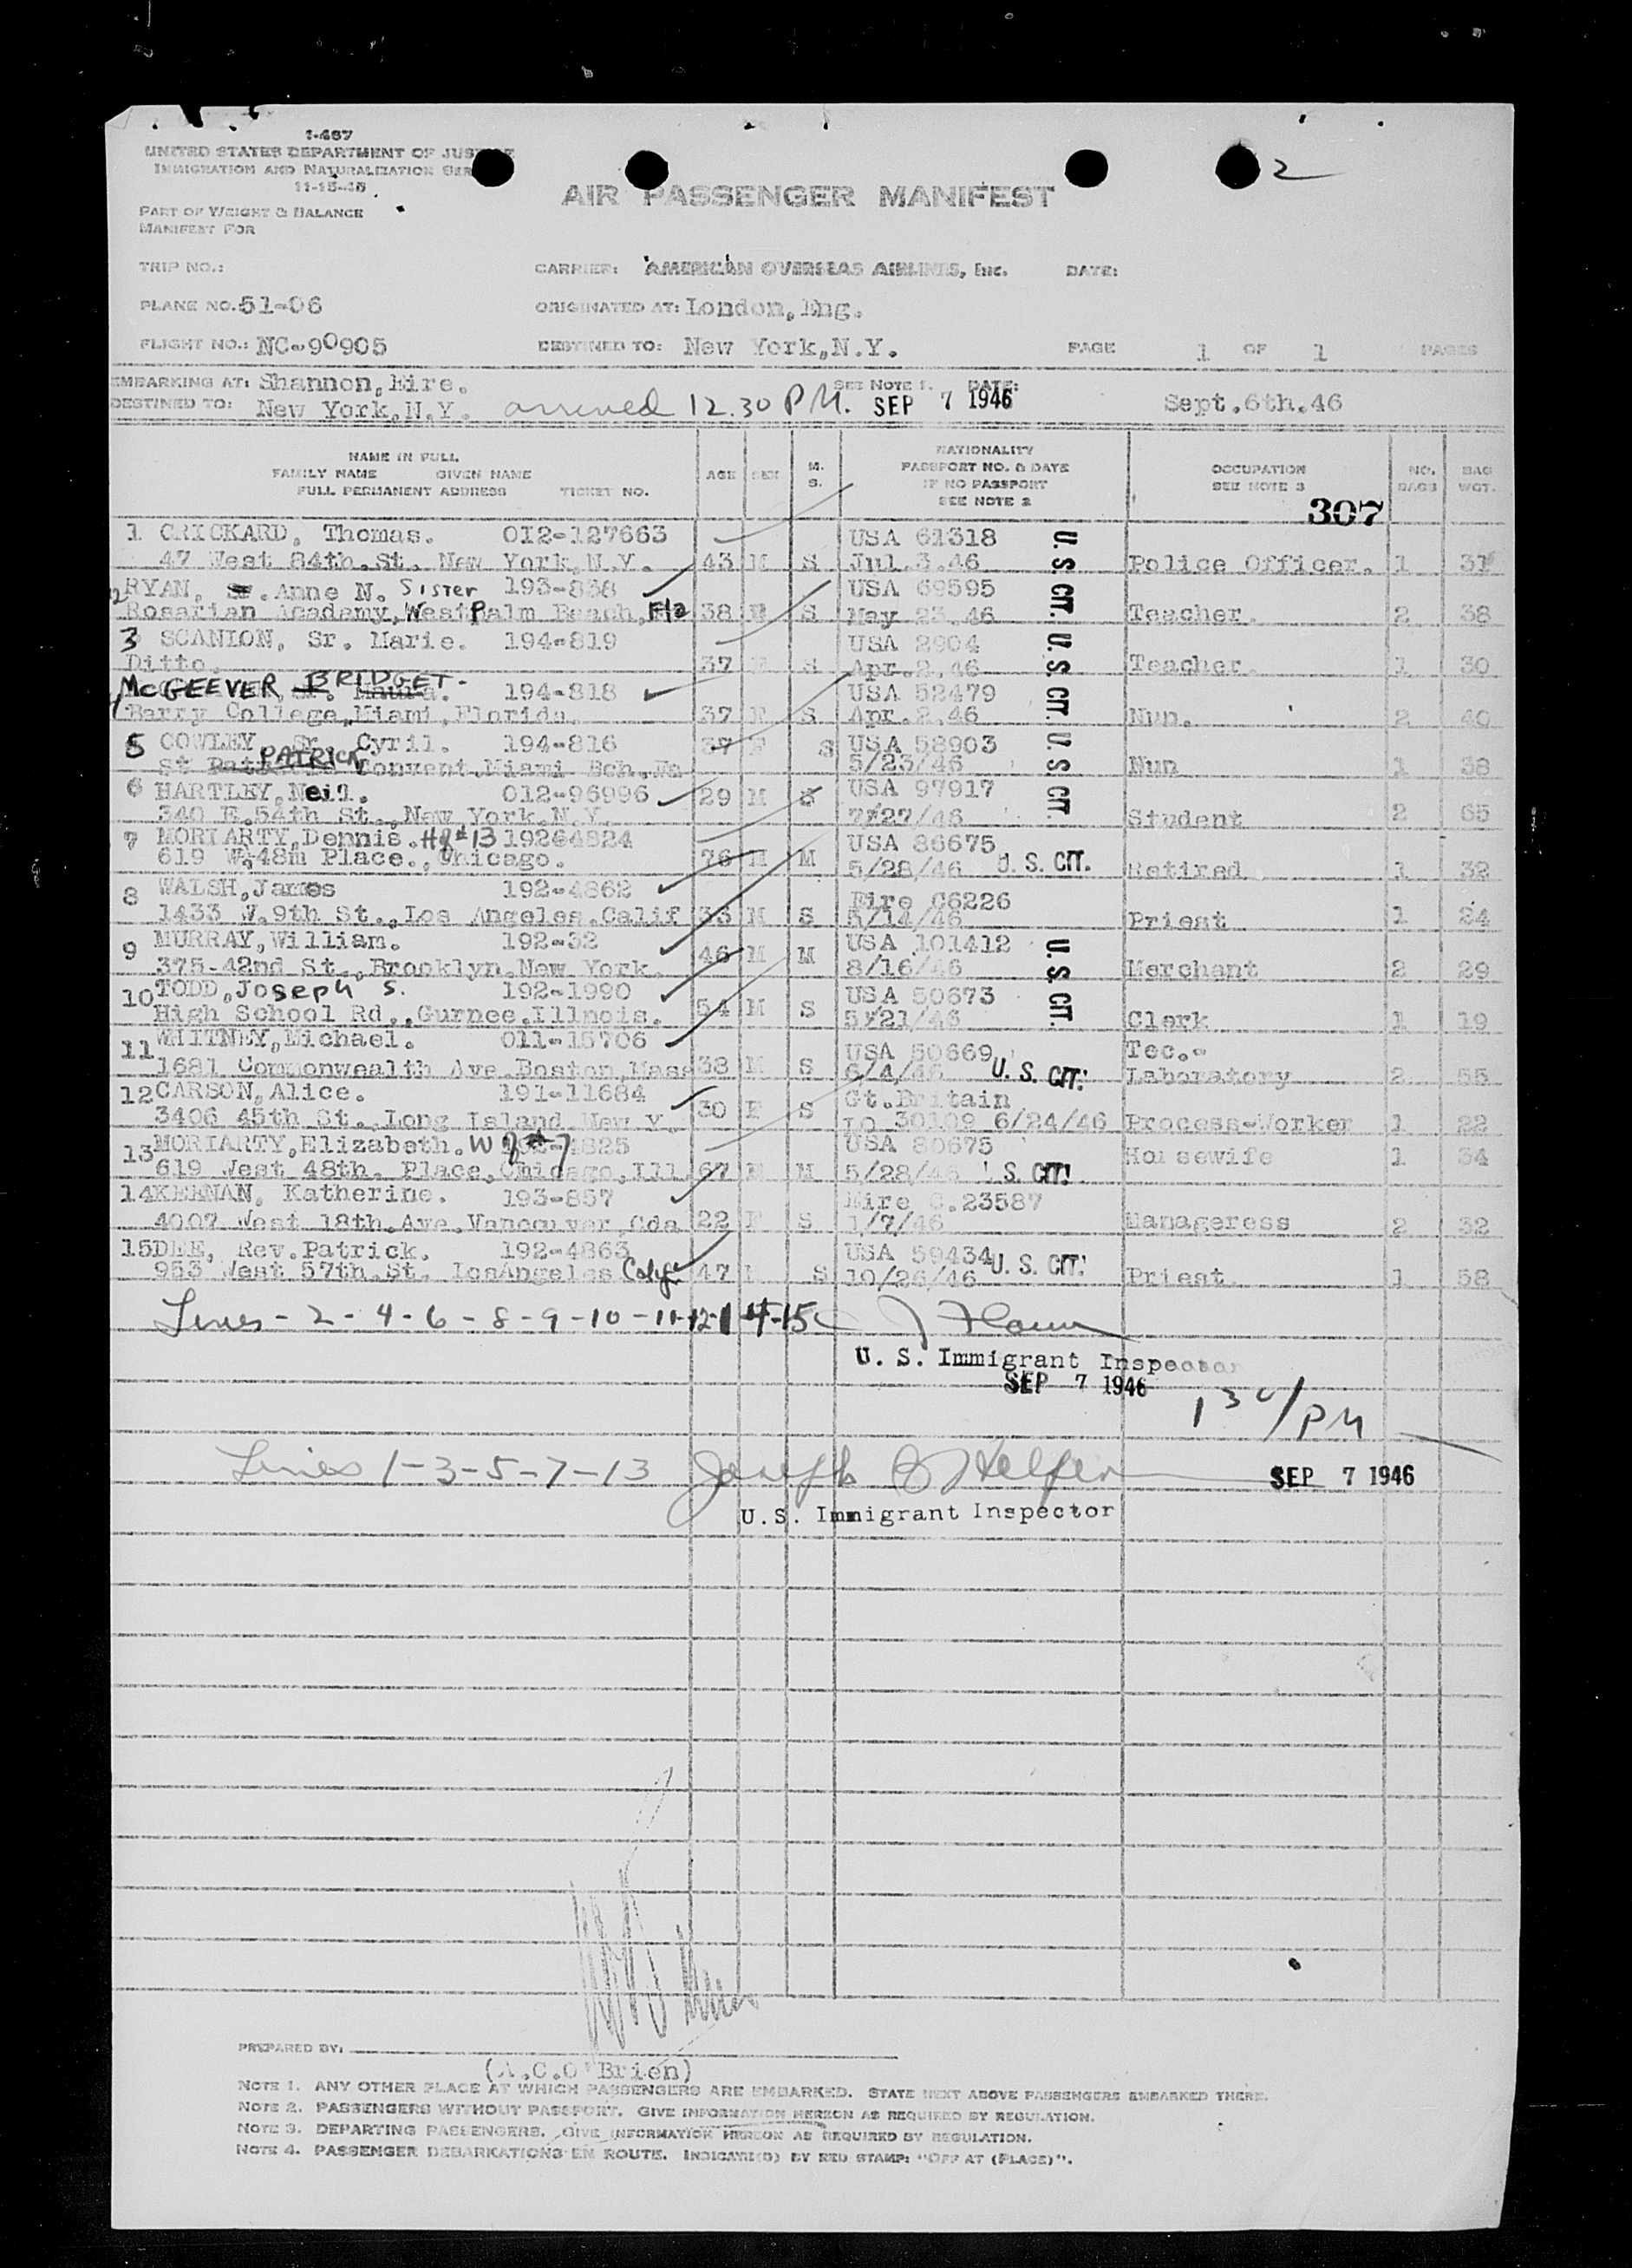 2
1-467
UNITED STATES DEPARTMENT OF JUSTICE
IMMIGRATION AND NATURALIZATION SER
11-15-45
AIR PASSENGER MANIFEST
PART OF WEIGHT & BALANCE
MANIFEST FOR
TRIP NO.: CARRIER: AMERICAN OVERSEAS AIRLINES, INC. DATE:
PLANE NO. 51-06 ORIGINATED AT: London, Eng.
FLIGHT NO.: NC-90905 DESTINED TO: New York, N.Y. PAGE 1 OF 1 PAGES
EMBARKING AT: Shannon, Eire. SEE NOTE 1. DATE:
DESTINED TO: New York, N.Y. arrived 12.30 PM. SEP 7 1946 Sept. 6th. 46
NAME IN FULL
FAMILY NAME GIVEN NAME
FULL PERMANENT ADDRESS TICKET NO. AGE SEX M. S. NATIONALITY PASSPORT NO. & DATE IF NO PASSPORT SEE NOTE 2 OCCUPATION SEE NOTE 3 NO. BAGS BAG WGT.
307
1 CRICKARD, Thomas. 012-127663 USA 61318 U.S. CIT.
47 West 84th. St. New York, N.Y. 43 M S Jul. 3. 46 Police Officer. 1 31
2 RYAN, Sr. Anne N. Sister 193-838 USA 69595
Rosarian Academy, West Palm Beach, Fla 38 F S May 23. 46 Teacher. 2 38
3 SCANLON, Sr. Marie. 194-819 USA 2904 U.S. CIT.
Ditto. 37 F S Apr. 2. 46 Teacher. 1 30
4 McGEEVER BRIDGET. 194-818 USA 52479
Barry College, Miami, Florida. 37 F S Apr. 2. 46 Nun. 2 40
5 COWLEY Sr. Cyril. 194-816 39 F S USA 58903 U.S. CIT.
St PATRICK Convent, Miami Bch, 5/23/46 Nun 1 38
6 HARTLEY, Neil. 012-96996 29 M S USA 97917
340 E. 54th St., New York, N.Y. 7/27/46 Student 2 65
7 MORIARTY, Dennis. H of #13 192-4824 USA 86675
619 W. 48th Place., Chicago. 76 M M 5/28/46 U.S. CIT. Retired 1 32
8 WALSH, James 192-4862 Eire C6226
1433 W. 9th St., Los Angeles. Calif 33 M S 5/14/46 Priest 1 24
9 MURRAY, William. 192-32 USA 101412 U.S. CIT.
375-42nd St., Brooklyn. New York. 46 M M 8/16/46 Merchant 2 29
10 TODD, Joseph S. 192-1990 USA 50673
High School Rd., Gurnee, Illnois. 54 M S 5/21/46 Clerk 1 19
11 WHITNEY, Michael. 011-15706 USA 50669 Tec.-
1681 Commonwealth Ave. Boston, Mass 38 M S 6/4/46 U.S. CIT. Laboratory 2 55
12 CARSON, Alice. 191-11684 Gt. Britain
3406 45th St., Long Island New Y. 30 F S LO 30109 6/24/46 Process-Worker 1 22
13 MORIARTY, Elizabeth. W of #7 192-4825 USA 80675 Housewife 1 34
619 West 48th. Place, Chicago, Ill 67 F M 5/28/46 U.S. CIT.
14 KEENAN, Katherine. 193-857 Eire C.23587
4007 West 18th. Ave. Vancouver, Cda 22 F S 1/7/46 Manageress 2 32
15 DEE, Rev. Patrick. 192-4863 USA 59434 U.S. CIT.
953 West 57th. St. LosAngeles Calif 47 S 10/26/46 Priest. 1 58
Lines - 2 - 4 - 6 - 8 - 9 - 10 - 11-12-14-15
U. S. Immigrant Inspector
SEP 7 1946
1 30/PM
Lines 1-3-5-7-13 Joseph C Helfer SEP 7 1946
U.S. Immigrant Inspector
PREPARED BY:
(A.C.O'Brien)
NOTE 1. ANY OTHER PLACE AT WHICH PASSENGERS ARE EMBARKED. STATE NEXT ABOVE PASSENGERS EMBARKED THERE.
NOTE 2. PASSENGERS WITHOUT PASSPORT. GIVE INFORMATION HEREON AS REQUIRED BY REGULATION.
NOTE 3. DEPARTING PASSENGERS. GIVE INFORMATION HEREON AS REQUIRED BY REGULATION.
NOTE 4. PASSENGER DEBARKATIONS EN ROUTE. INDICATE(D) BY RED STAMP: "OFF AT (PLACE)".